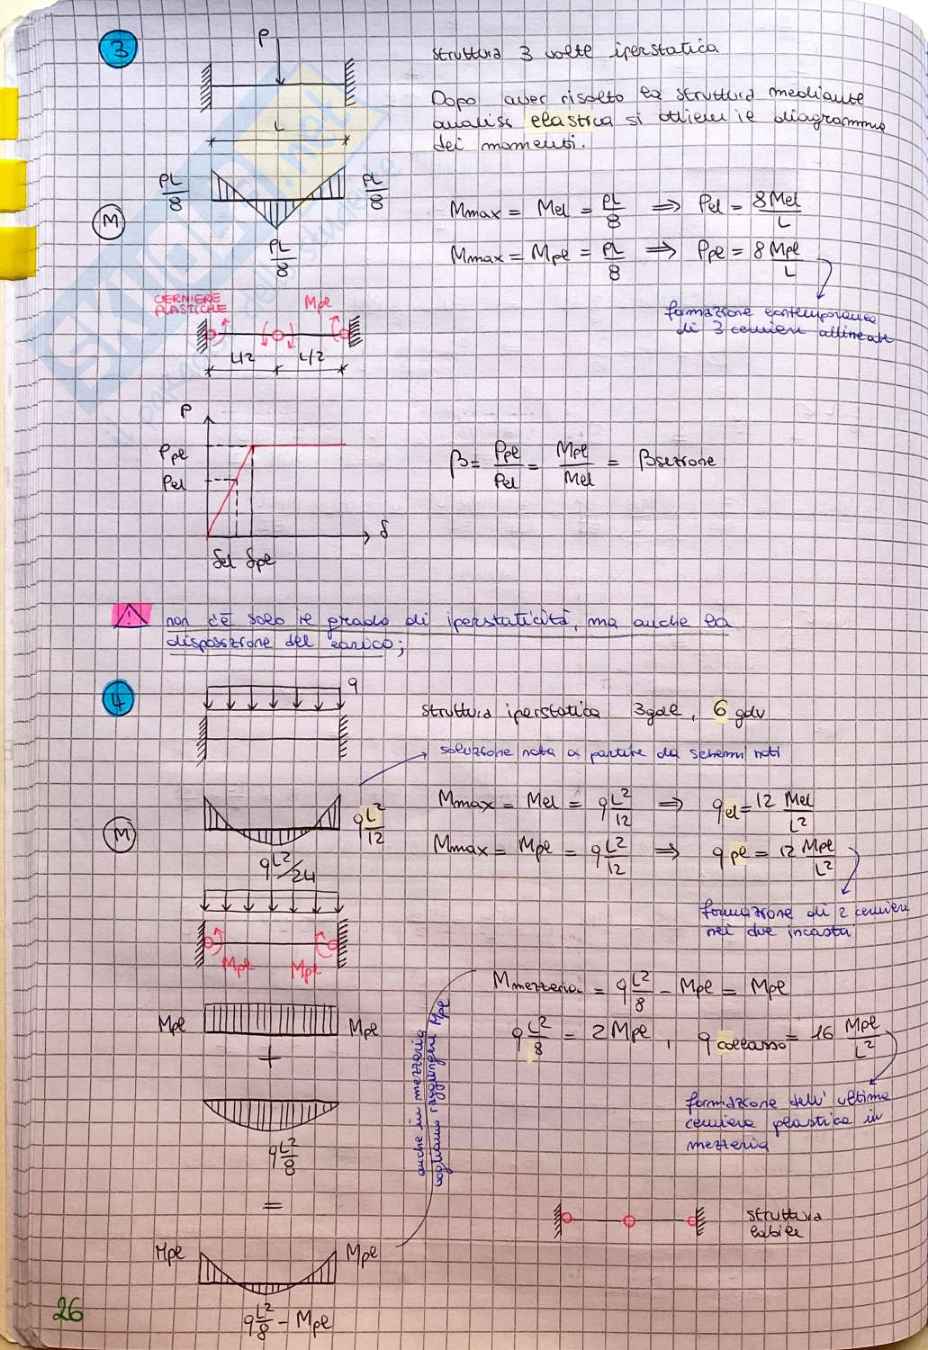 3
P
struttura 3 volte iperstatica
Dopo aver risolto la struttura mediante
analisi elastica si ottiene il diagramma
dei momenti.
L
PL/8 PL/8
M
PL/8
Mmax = Mel = PL/8 ⇒ Pel = 8Mel/L
Mmax = Mpl = PL/8 ⇒ Ppl = 8 Mpl/L
formazione contemporanea
di 3 cerniere allineate
CERNIERE
PLASTICHE
Mpl
L/2 L/2
P
Ppl
Pel
δ
δel δpl
β = Ppl/Pel = Mpl/Mel = βsezione
non c'è solo il grado di iperstaticità, ma anche la
disposizione del carico;
4
q
struttura iperstatica 3gdl, 6 gdv
soluzione nota a partire da schemi noti
M
qL²/12
qL²/24
Mmax = Mel = qL²/12 ⇒ qel = 12 Mel/L²
Mmax = Mpl = qL²/12 ⇒ qpl = 12 Mpl/L²
formazione di 2 cerniere
nei due incastri
Mpl Mpl
Mmezzeria = qL²/8 - Mpl = Mpl
qL²/8 = 2Mpl, qcollasso = 16 Mpl/L²
formazione dell'ultima
cerniera plastica in
mezzeria
Mpl Mpl
+
qL²/8
=
anche in mezzeria
vogliamo raggiungere Mpl
struttura
labile
Mpl Mpl
qL²/8 - Mpl
26